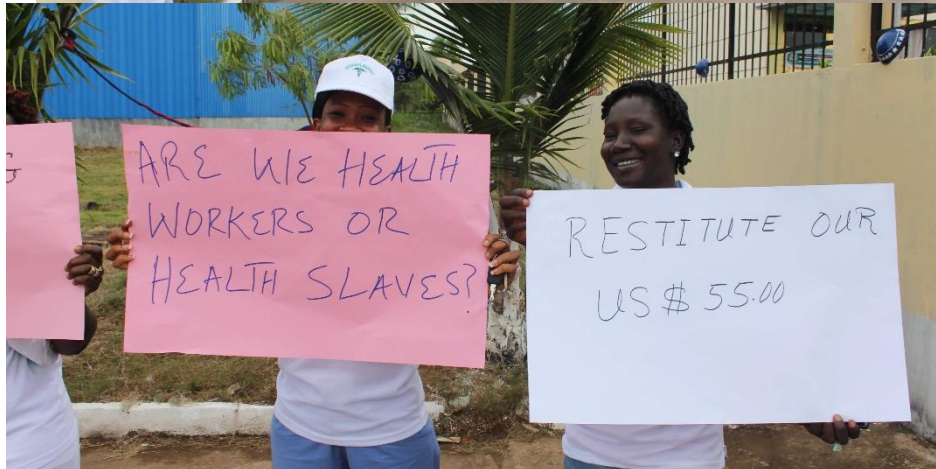 G
ARE WE HEALTH
WORKERS OR
HEALTH SLAVES?
RESTITUTE OUR
US $ 55.00